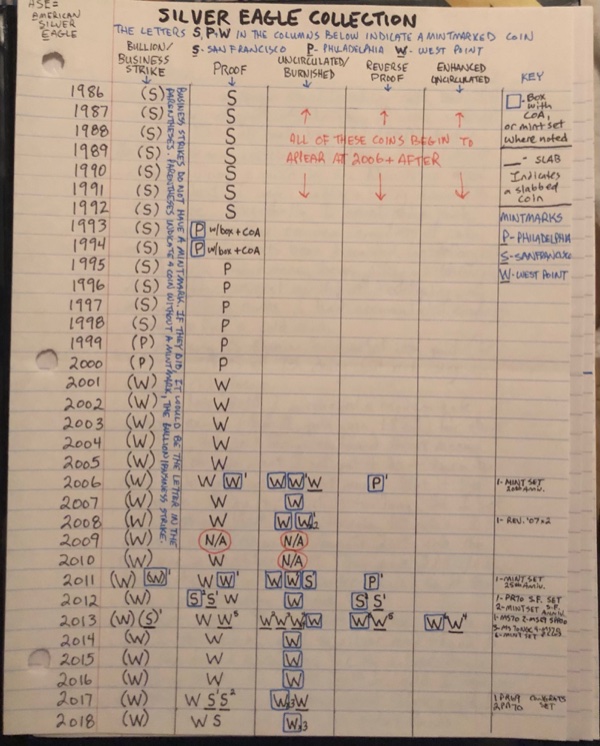 ASE=
AMERICAN
SILVER
EAGLE
SILVER EAGLE COLLECTION
THE LETTERS S, P, W IN THE COLUMNS BELOW INDICATE A MINTMARKED COIN
S-SAN FRANCISCO P-PHILADELPHIA W-WEST POINT
BILLION/
BUSINESS
STRIKE
PROOF
UNCIRCULATED/
BURNISHED
REVERSE
PROOF
ENHANCED
UNCIRCULATED
KEY
BUSINESS STRIKES DO NOT HAVE A MINTMARK. IF THEY DID, IT WOULD BE THE LETTER IN THE
PARENTHESES. PARENTHESES INDICATE A COIN WITHOUT A MINTMARK, THE BULLION/BUSINESS STRIKE.
ALL OF THESE COINS BEGIN TO
APPEAR AT 2006 + AFTER
-Box
with
COA,
or mint set
where noted
- SLAB
Indicates
a slabbed
coin
MINTMARKS
P-PHILADELPHIA
S-SANFRANCISCO
W-WEST POINT
1986 (S) S
1987 (S) S
1988 (S) S
1989 (S) S
1990 (S) S
1991 (S) S
1992 (S) S
1993 (S) P w/box+COA
1994 (S) P w/box+COA
1995 (S) P
1996 (S) P
1997 (S) P
1998 (S) P
1999 (P) P
2000 (P) P
2001 (W) W
2002 (W) W
2003 (W) W
2004 (W) W
2005 (W) W
2006 (W) W W¹ W W¹ W P¹ 1-MINT SET
20th ANNIV.
2007 (W) W W
2008 (W) W W W¹ 2 1-REV. '07 x2
2009 (W) N/A N/A
2010 (W) W N/A
2011 (W) (W)¹ W W¹ W W¹ S¹ P¹ 1-MINT SET
25th ANNIV.
2012 (W) S² S¹ W W S² S¹ 1-PR70 S.F. SET
2-MINT SET S.F.
ANNIV.
2013 (W) (S)¹ W W⁵ W² W³ W⁴ W W⁶ W⁵ W⁶ W⁴
2014 (W) W W
2015 (W) W W
2016 (W) W W
2017 (W) W S¹ S² W x3 W
SET
2018 (W) W S W x3